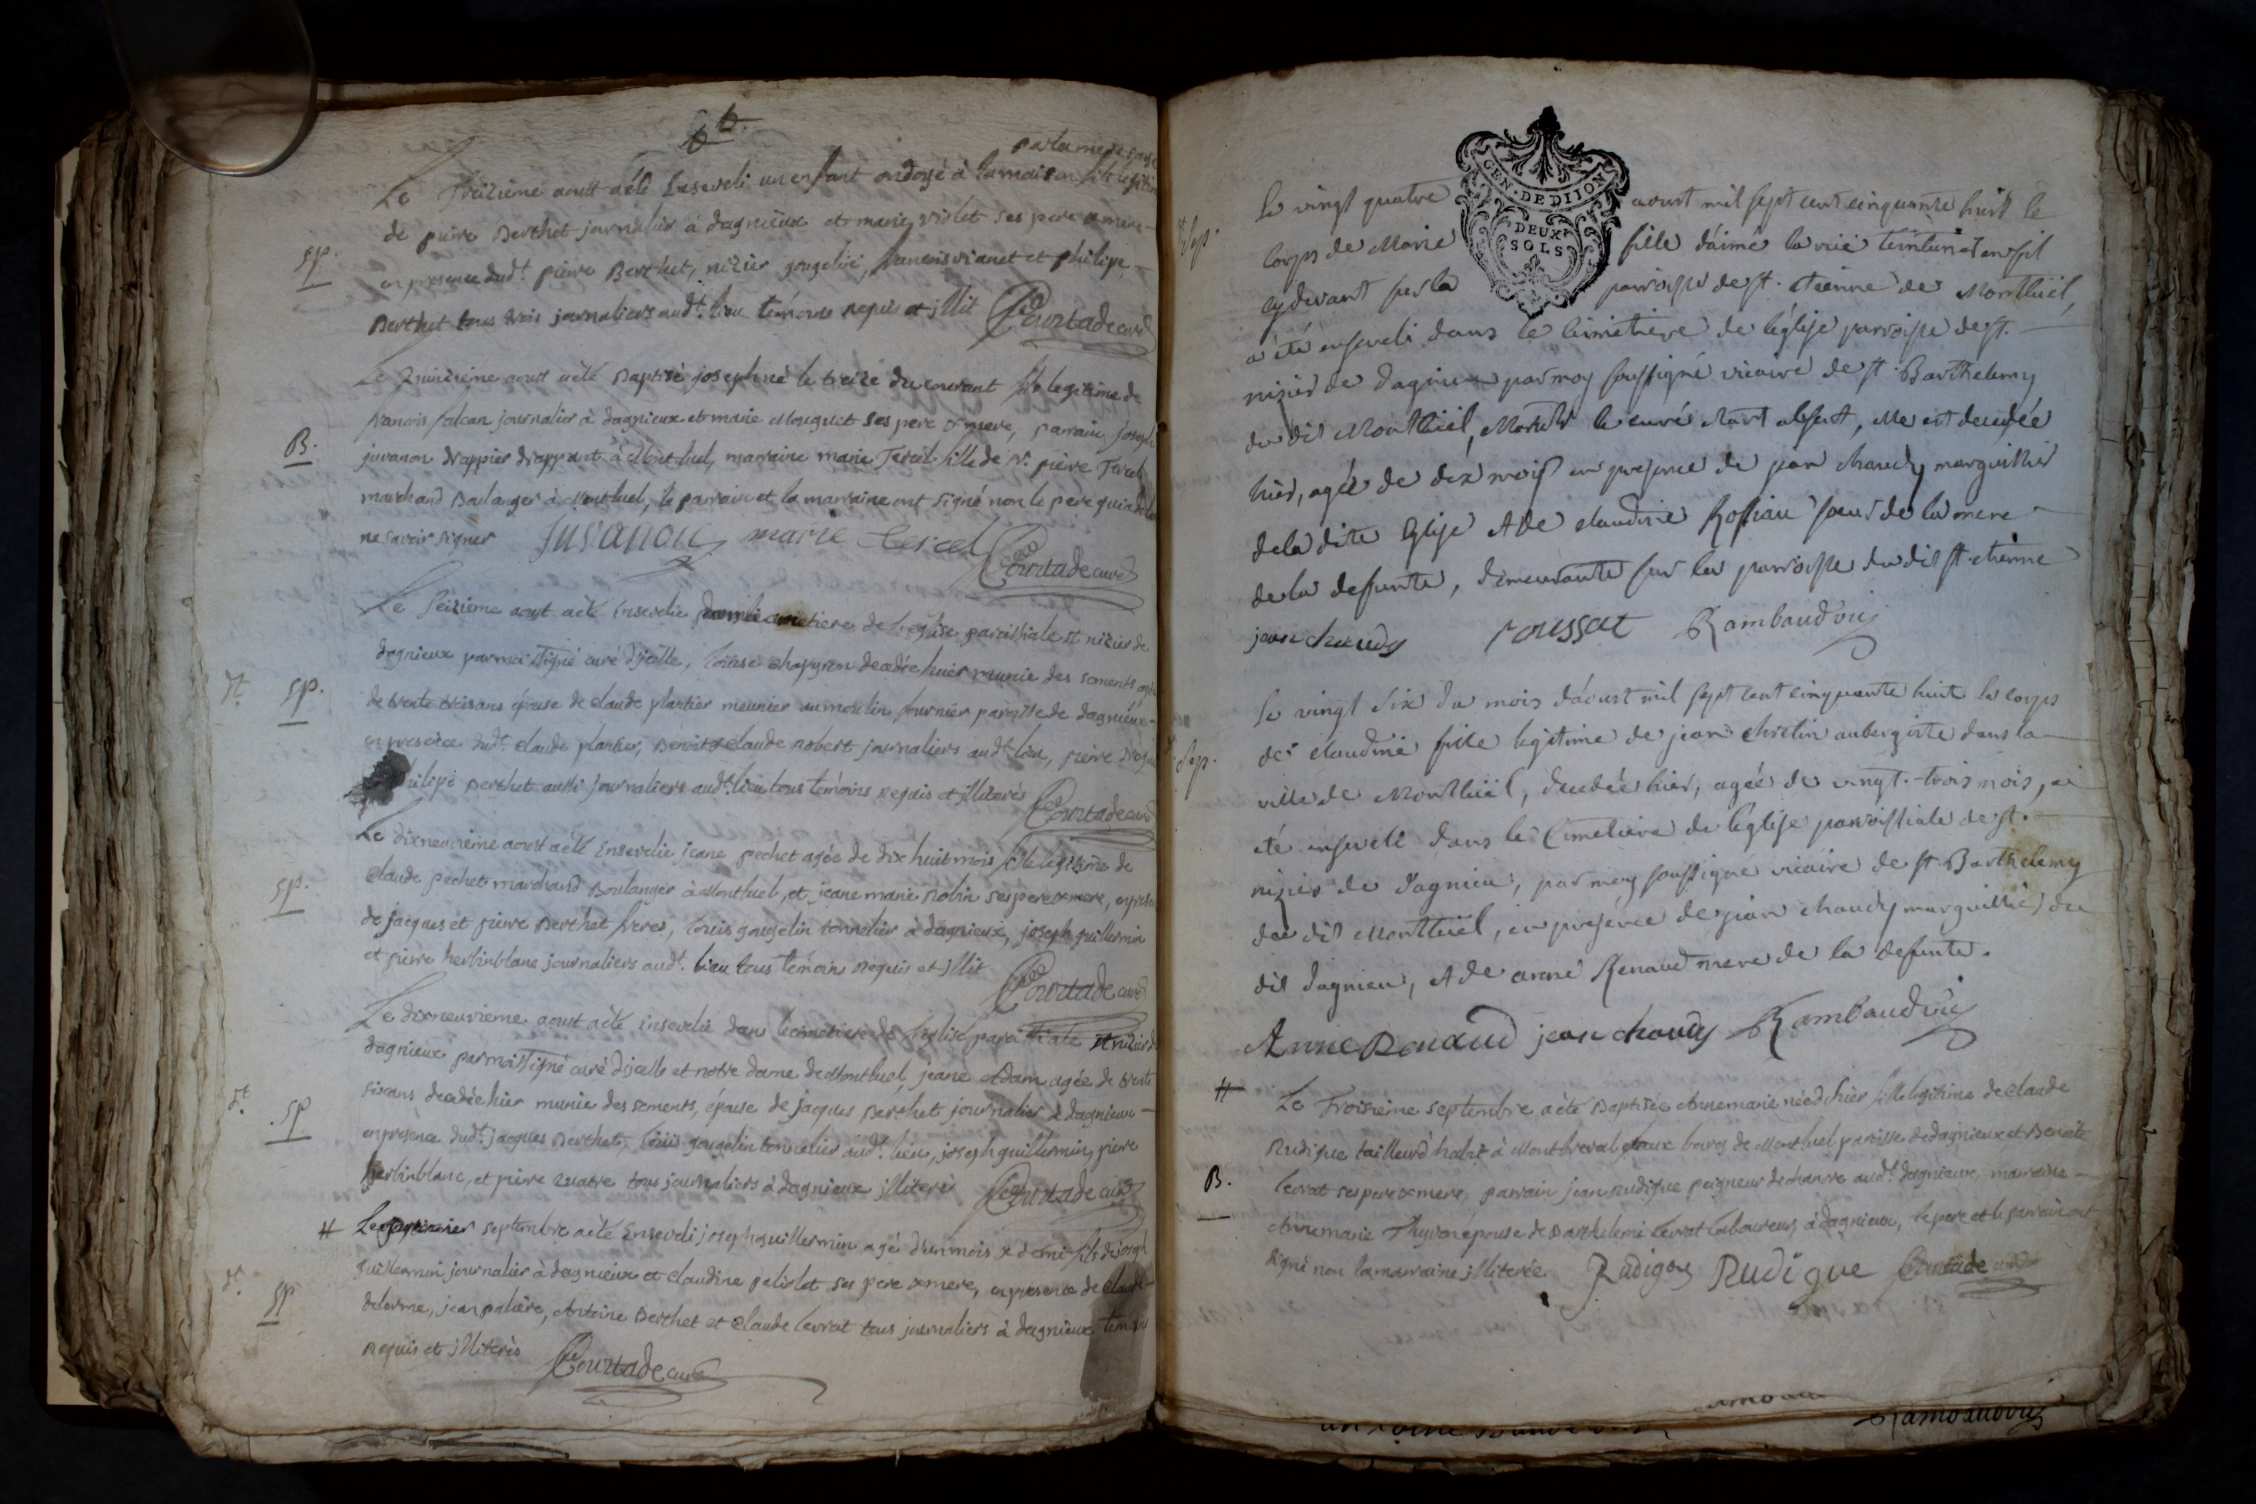 6e.
par la mere sage
Le Treizieme aoust a été Enseveli un enfant ondoyé à la maison fils legitime
de piere Berthet journalier à dagnieux et marie violet ses pere et mere
sp.
en presence dudt. pierre Berthet, nizier gougelin, francois vianet et philipe
Berthet tous trois journaliers audt. lieu temoins requis et jllit Courtade curé
Le Quinzieme aoust a été Baptisé joseph né le treize du courant fils legitime de
francois falcan journalier à dagnieux et marie Mouguet ses pere & mere, parrain joseph
B.
juvanon drappier drappant à Montluel, marraine marie Tercel fille de Sr. piere Tercel
marchand Boulanger à Montluel, le parrain et la marraine ont signé non le pere qui a
ne savoir signer Juvanon marie tercel Courtade curé
Le Seizieme aout a été Ensevelie dans le cimetiere de l'eglise paroissiale st nizier de
dagnieux par moi ssigné curé d'jcelle, Loüise chapuzon decedée hier munie des scments,
dt. sp.
de trente trois ans épouse de claude plantier meunier au moulin fournier paroisse de dagnieux
en presence dudt. claude plantier, Benoit & claude Robert journaliers audt. lieu, piere
philipe Berthet aussi journaliers audt. lieu tous temoins requis et jlliterés Courtade curé
Le dixneuvieme aoust a été Ensevelie jeane pechet agée de dix huit mois fille legitime de
sp.
claude pechet marchand Boulanger à Montluel, et jeane marie Robin ses pere & mere, en presence
de jacques et pierre Berthet freres, Loüis gougelin tonnelier à dagnieux, joseph guillermin
et pierre herbinblanc journaliers audt. lieu tous temoins requis et jllit Courtade curé
Le dixneuvieme aoust a été Ensevelie dans le cimetiere de l'eglise paroissiale st nizier de
dagnieux par moi ssigné curé d'jcelle et notre dame de Montluel, jeane Adam agée de trente
dt. sp
six ans decedée hier munie des scments, épouse de jacques Berthet journalier à dagnieux
en presence dudt. jacques Berthet, Loüis gougelin tonnelier audt. lieu, joseph guillermin, piere
herbinblanc, et piere Quatre tous journaliers à dagnieux jlliterés Courtade curé
# Le premier septembre a été Enseveli joseph guillermin agé d'un mois & demi fils de joseph
dt. sp
guillermin journalier à dagnieux et claudine pelislot ses pere & mere, en presence de claude
delorme, jean paliere, Antoine Berthet et claude Levrat tous journaliers à dagnieux temoins
requis et jlliterés Courtade curé
GEN. DE DIJON
DEUX
SOLS
Le vingt quatre aoust mil sept cent cinquante huit le
Sep.
corps de Marie fille d'aimé teinturier en fil
cy devant sur la parroisse de st. etienne de Montluël,
a été enseveli dans le cimetiere de l'église parroisse de st.
nizier de dagnieu par moy soussigné vicaire de st. Barthelemy
du dit Montluël, Monsr le curé etant absent, elle est decedée
hier, agée de dix mois en presence de jean chaudy marguillier
de la dite Eglise et de claudine Rossiau soeur de la mere
de la defunte, demeurante sur la parroisse du dit st. etienne
jean chaudy roussat Rambaud vic
Le vingt six du mois d'aoust mil sept cent cinquante huit le corps
de claudine fille legitime de jean chretin aubergiste dans la
Sep.
ville de Montluël, decedée hier, agée de vingt-trois mois, a
été enseveli dans le Cimetiere de l'eglise parroissiale de st.
nizier de dagnieu, par moy soussigné vicaire de st Barthelemy
du dit Montluël, en presence de jean chaudy marguillier du
dit dagnieu, et de anne Renaud mere de la defunte.
Anne Renaud jean chaudy Rambaud vic
# Le Troisieme septembre a été Baptisée Annemarie née d'hier fille legitime de claude
Rudigue tailleur d'habit à Montbreval faux bourg de Montluel paroisse de dagnieux et Benoite
B.
Levrat ses pere & mere, parrain jean Rudigue peigneur de chanvre audt. dagnieux, marraine
Annemarie Thuyon epouse de Barthelemi Levrat laboureur à dagnieux, le pere et le parrain ont
signé non la marraine jlliterée Radigue Rudigue Courtade curé
Rambaud vic